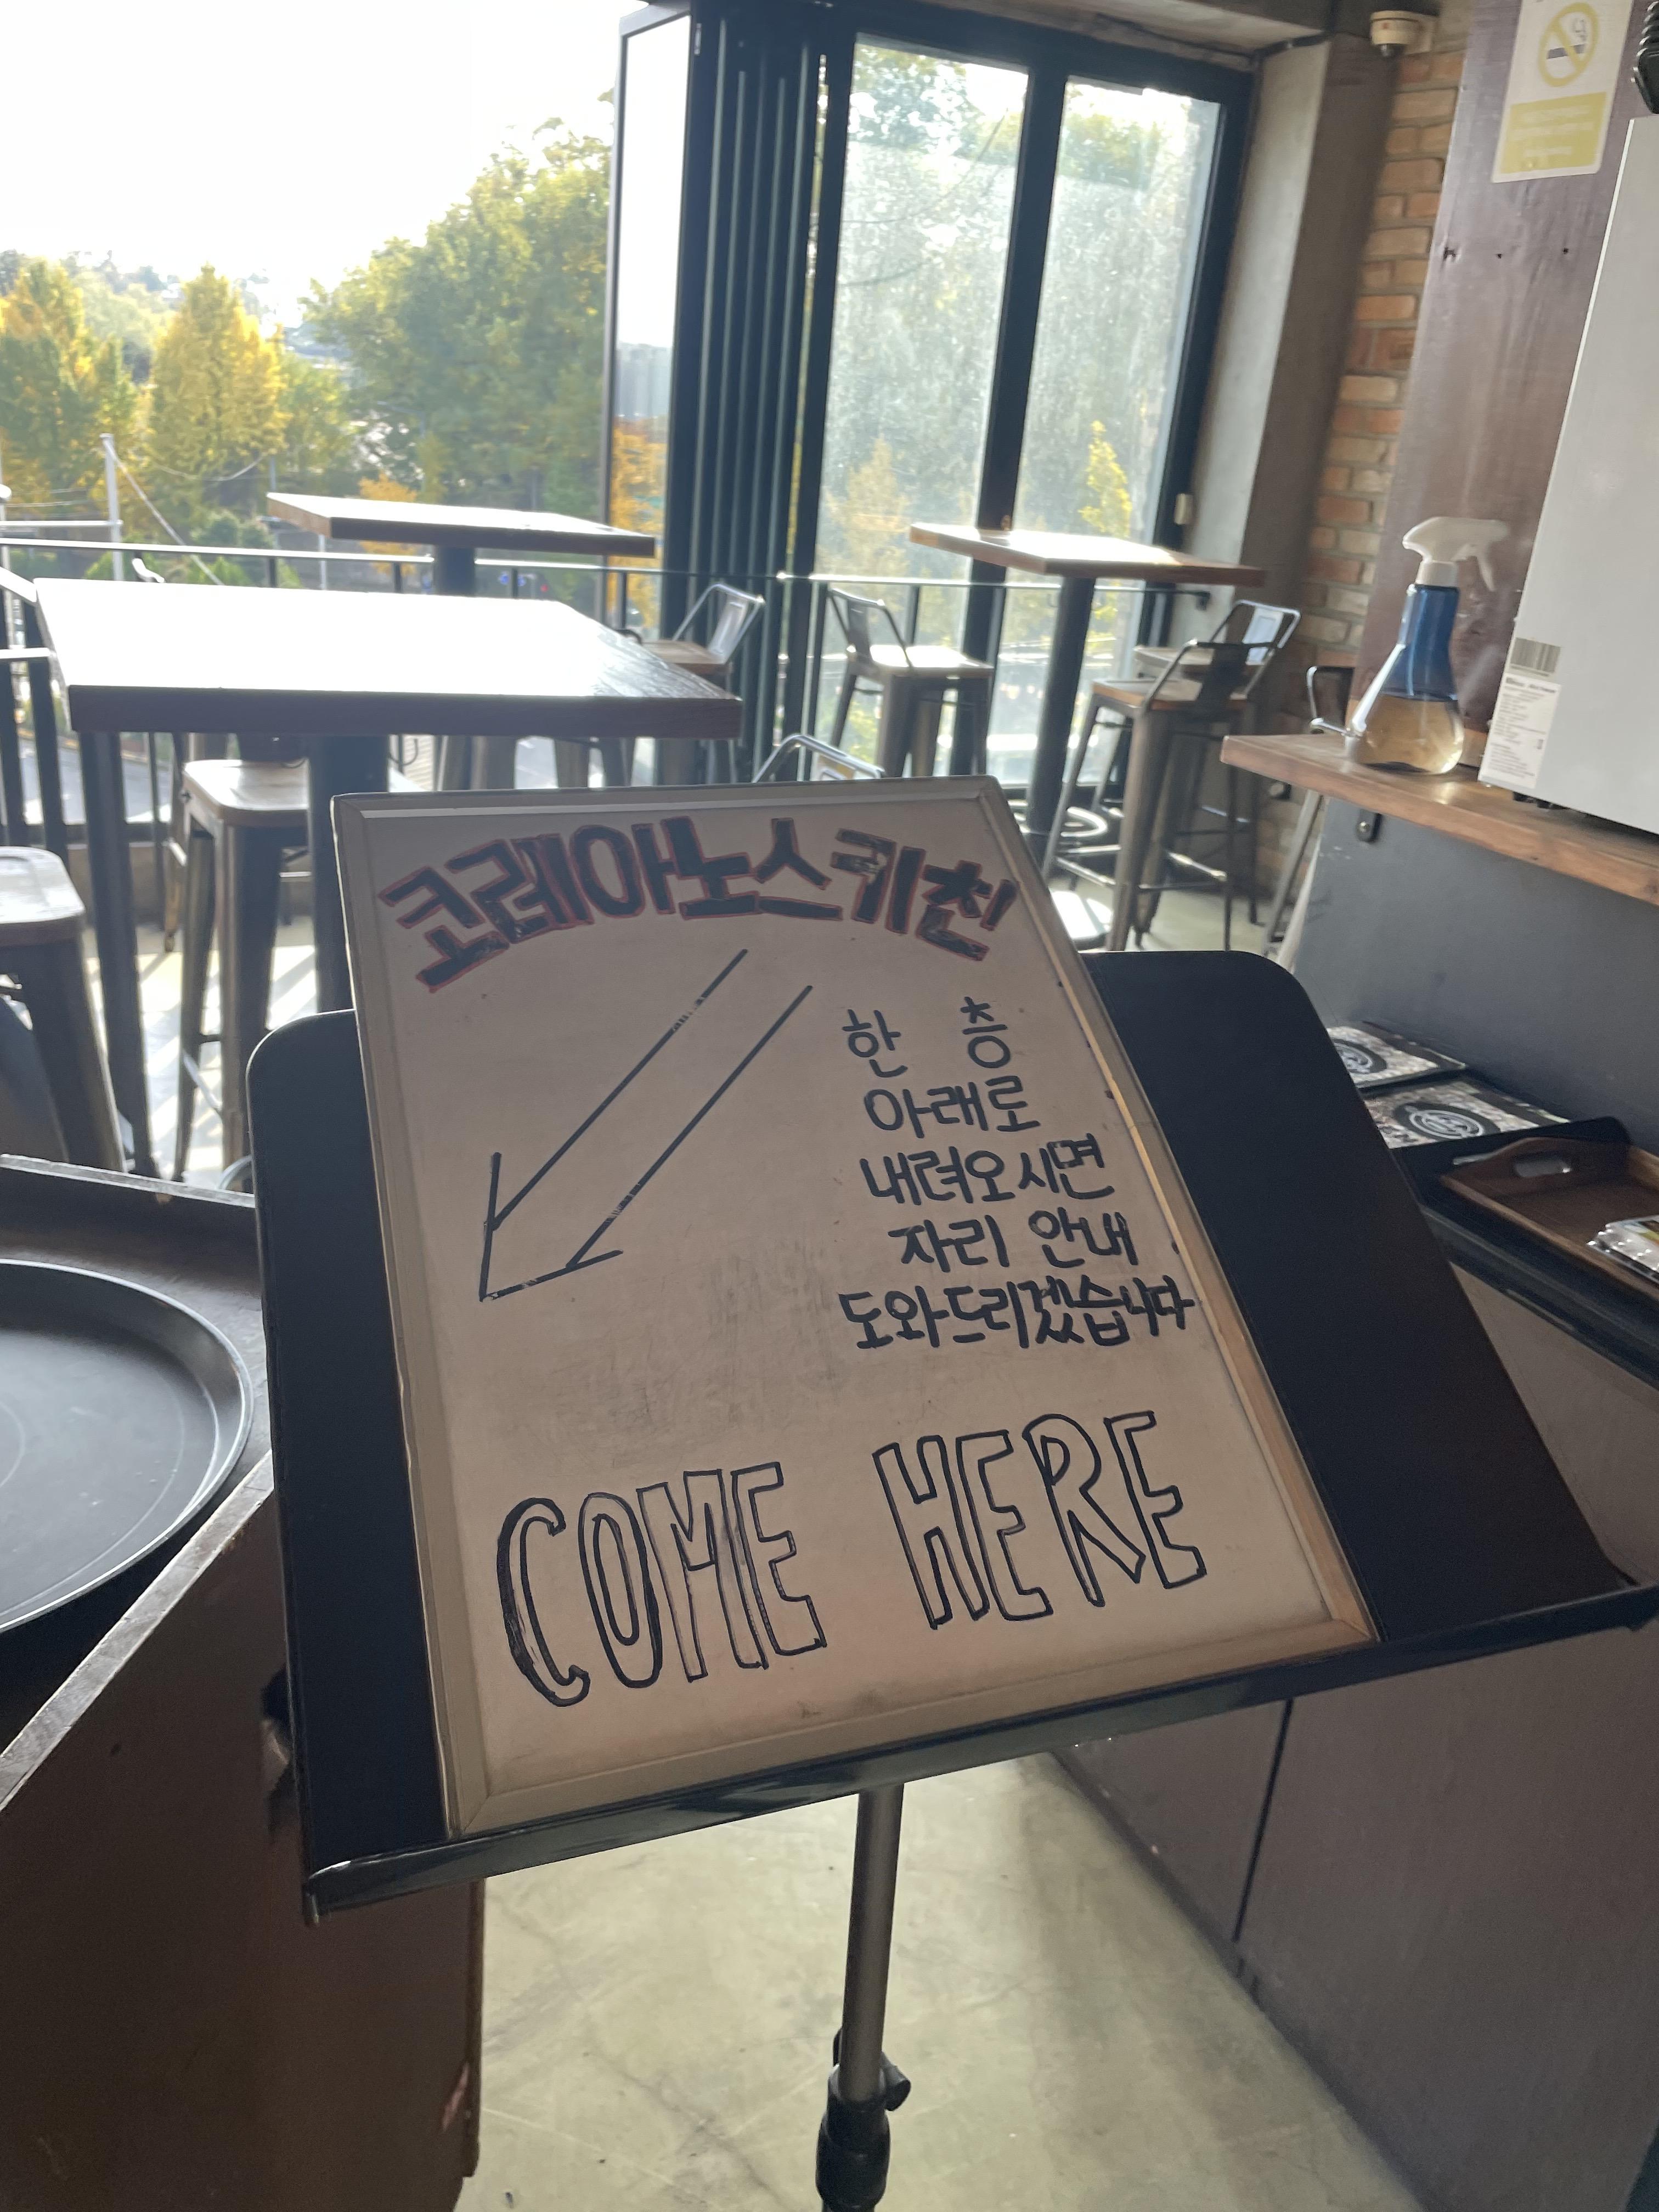 코레아노스키친
한 층
아래로
내려오시면
자리 안내
도와드리겠습니다
COME HERE